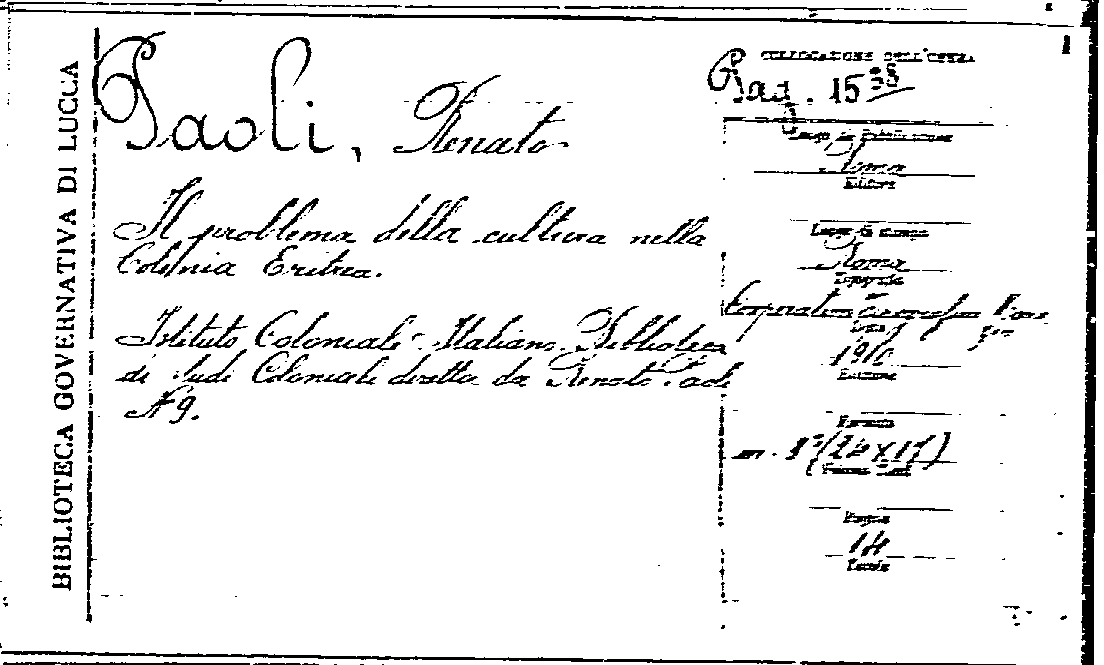 BIBLIOTECA GOVERNATIVA DI LUCCA
Paoli, Renato
Il problema della cultura nella
Colonia Eritrea.
Istituto Coloniale Italiano. Biblioteca
di Studi Coloniali diretta da Renato Paoli
N 9.
COLLOCAZIONE DELL'OPERA
15
Luogo di Pubblicazione
Roma
Editore
Luogo di stampa
Roma
Tipografia
Cooperativa
Data
1910
Edizione
Formato
in 8° (24x17)
Pagine
14
Tavole